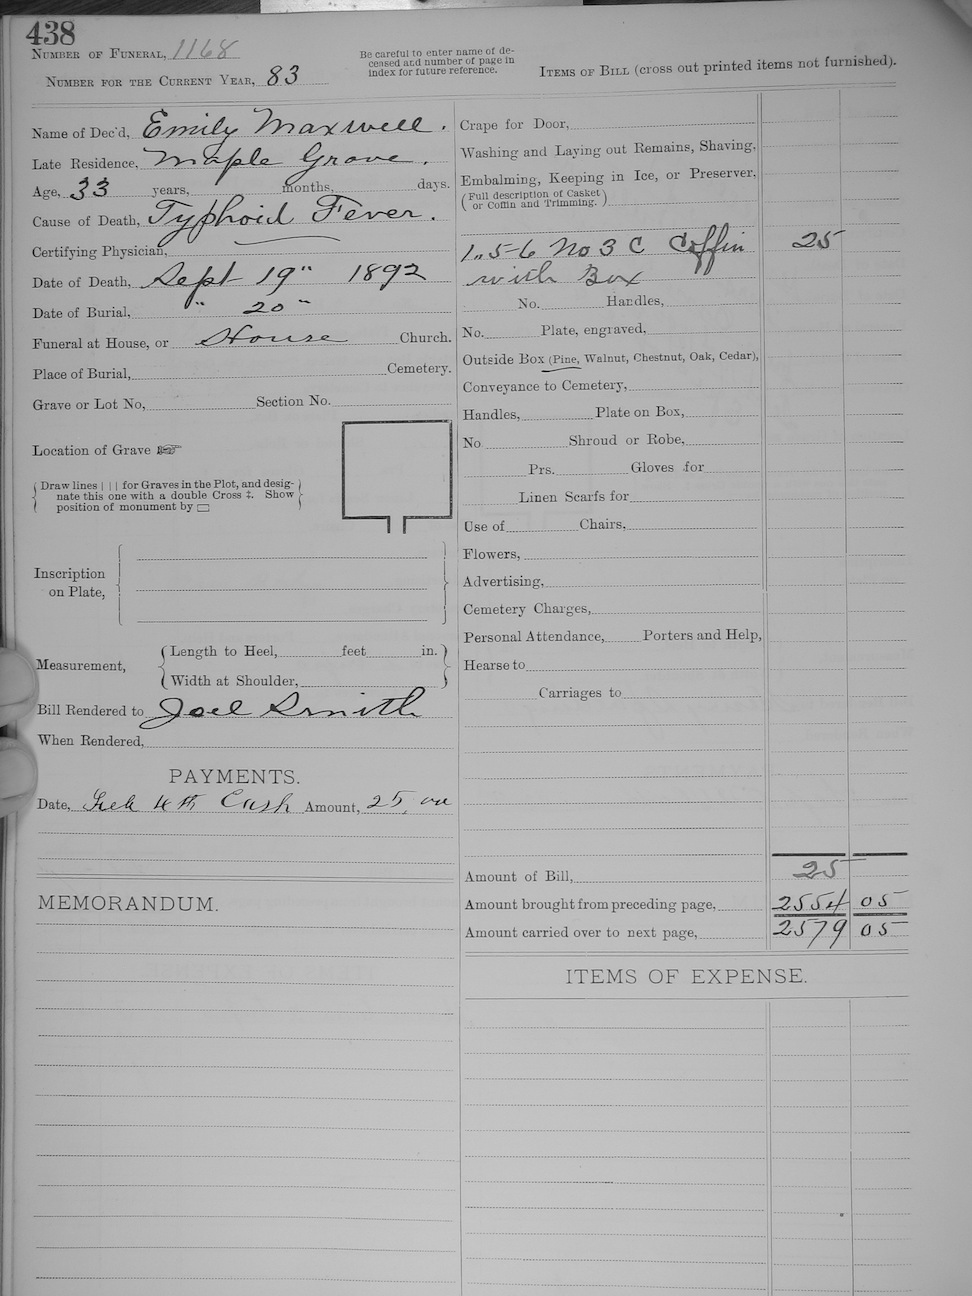 438
Number of Funeral, 1168
Number for the Current Year, 83
Be careful to enter name of de-
ceased and number of page in
index for future reference.
Items of Bill (cross out printed items not furnished).
Name of Dec'd, Emily Maxwell.
Late Residence, Maple Grove.
Age, 33 years, months, days.
Cause of Death, Typhoid Fever.
Certifying Physician,
Date of Death, Sept 19" 1892
Date of Burial, " 20 "
Funeral at House, or House Church.
Place of Burial, Cemetery.
Grave or Lot No, Section No.
Location of Grave ☞
Draw lines | | | for Graves in the Plot, and desig-
nate this one with a double Cross ‡. Show
position of monument by ▭
Inscription
on Plate,
Measurement,
Length to Heel, feet in.
Width at Shoulder,
Bill Rendered to Joel Smith
When Rendered,
PAYMENTS.
Date, 4th Cash Amount, 25,
MEMORANDUM.
Crape for Door,
Washing and Laying out Remains, Shaving,
Embalming, Keeping in Ice, or Preserver,
(Full description of Casket
or Coffin and Trimming.)
1,, 5-6 No 3 C Coffin 25
with Box
No. Handles,
No. Plate, engraved,
Outside Box (Pine, Walnut, Chestnut, Oak, Cedar),
Conveyance to Cemetery,
Handles, Plate on Box,
No Shroud or Robe,
Prs. Gloves for
Linen Scarfs for
Use of Chairs,
Flowers,
Advertising,
Cemetery Charges,
Personal Attendance, Porters and Help,
Hearse to
Carriages to
Amount of Bill, 25
Amount brought from preceding page, 2554 05
Amount carried over to next page, 2579 05
ITEMS OF EXPENSE.